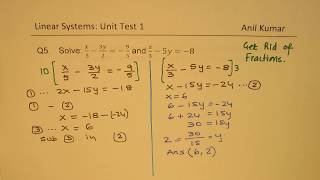 Linear Systems: Unit Test 1
Anil Kumar
Q5. Solve: x/5 − 3y/2 = −9/5 and x/3 − 5y = −8
Get Rid of
Fractions.
10[x/5 − 3y/2 = −9/5]
① ... 2x − 15y = −18
x = −18 − (−24)
③ ... x = 6
Sub ③ in ②
[x/3 − 5y = −8]3
② ... x − 15y = −24
x = 6
6 − 15y = −24
6 + 24 = 15y
30 = 15y
2 = 30/15 = y
Ans (6, 2)